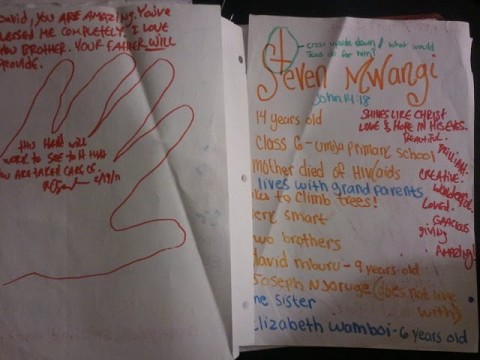 ovid, YOU ARE AMAZING. You've
LESSED ME COMPLETELY. I LOVE
YOU BROTHER. YOUR FATHER WILL
PROVIDE.
THIS HAND WILL
WORK TO SEE TO IT THAT
YOU ARE TAKEN CARE OF.
2/19/11
cross upside down / what would
Jesus do for him?
Steven Mwangi
John 14:18
14 years old
SHINES LIKE CHRIST
LOVE & HOPE IN HIS EYES.
BEAUTIFUL.
class 6 - umoja primary school
BRILLIANT.
mother died of HIV/aids
CREATIVE.
lives with grand parents
wonderful
likes to climb trees!
LOVED.
very smart
GRACIOUS
giving
two brothers
AMAZING!
david mburu - 9 years old
Joseph Njoruge (does not live
with)
ne sister
Elizabeth wamboi - 6 years old